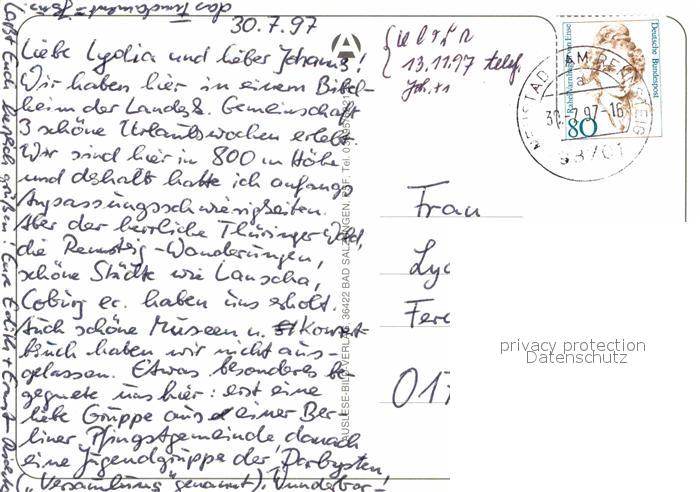 das Fundament = Jesus!
30.7.97
Liebe Lydia und lieber Johann!
Wir haben hier in einem Bibel-
heim der Landesk. Gemeinschaft
3 schöne Urlaubswochen erlebt.
Wir sind hier in 800 m Höhe
und deshalb hatte ich anfangs
Anpassungsschwierigkeiten.
Aber der herrliche Thüringer Wald,
die Rennsteig-Wanderungen,
schöne Städte wie Lauscha,
Coburg ec. haben uns erholt.
Auch schöne Museen u. Konzert-
besuch haben wir nicht aus-
gelassen. Etwas besonderes be-
gegnete uns hier: erst eine
liebe Gruppe aus einer Ber-
liner Pfingstgemeinde, danach
eine Jugendgruppe der "Darbysten"
("Versammlung" genannt). Wunderbar-
Laßt Euch herzlich grüßen! Eure Edith + Ernst
13.11.97 telef.
AUSLESE-BILD-VERLAG, 36422 BAD SALZUNGEN, PSF, Tel.
Deutsche Bundespost
Rahel Varnhagen von Ense
80
NEUSTADT AM RENNSTEIG
a
30.-7.97-16
98701
Frau
Lyd
Fer
017
privacy protection
Datenschutz